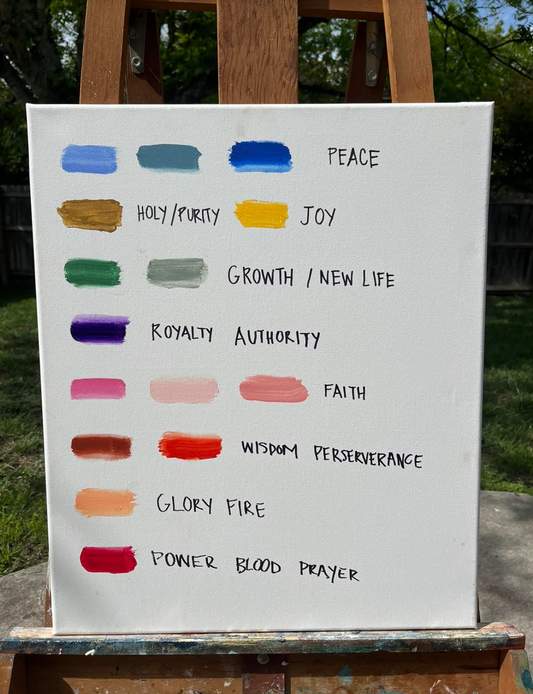 PEACE
HOLY/PURITY JOY
GROWTH / NEW LIFE
ROYALTY AUTHORITY
FAITH
WISDOM PERSERVERANCE
GLORY FIRE
POWER BLOOD PRAYER